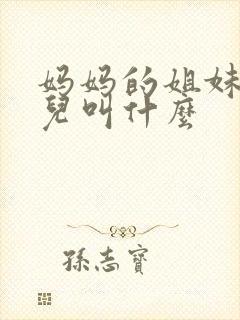 妈妈的姐妹
兒叫什麼
孫志寶